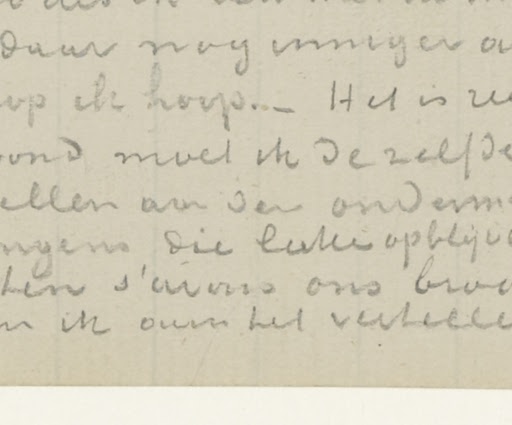 daar nog inniger a
op ik hoop.._ Het is
ond moet ik dezelfde
ellen aan den onder
ngens die leuke opblij
ten s'avons ons broo
n ik aan het vertelle